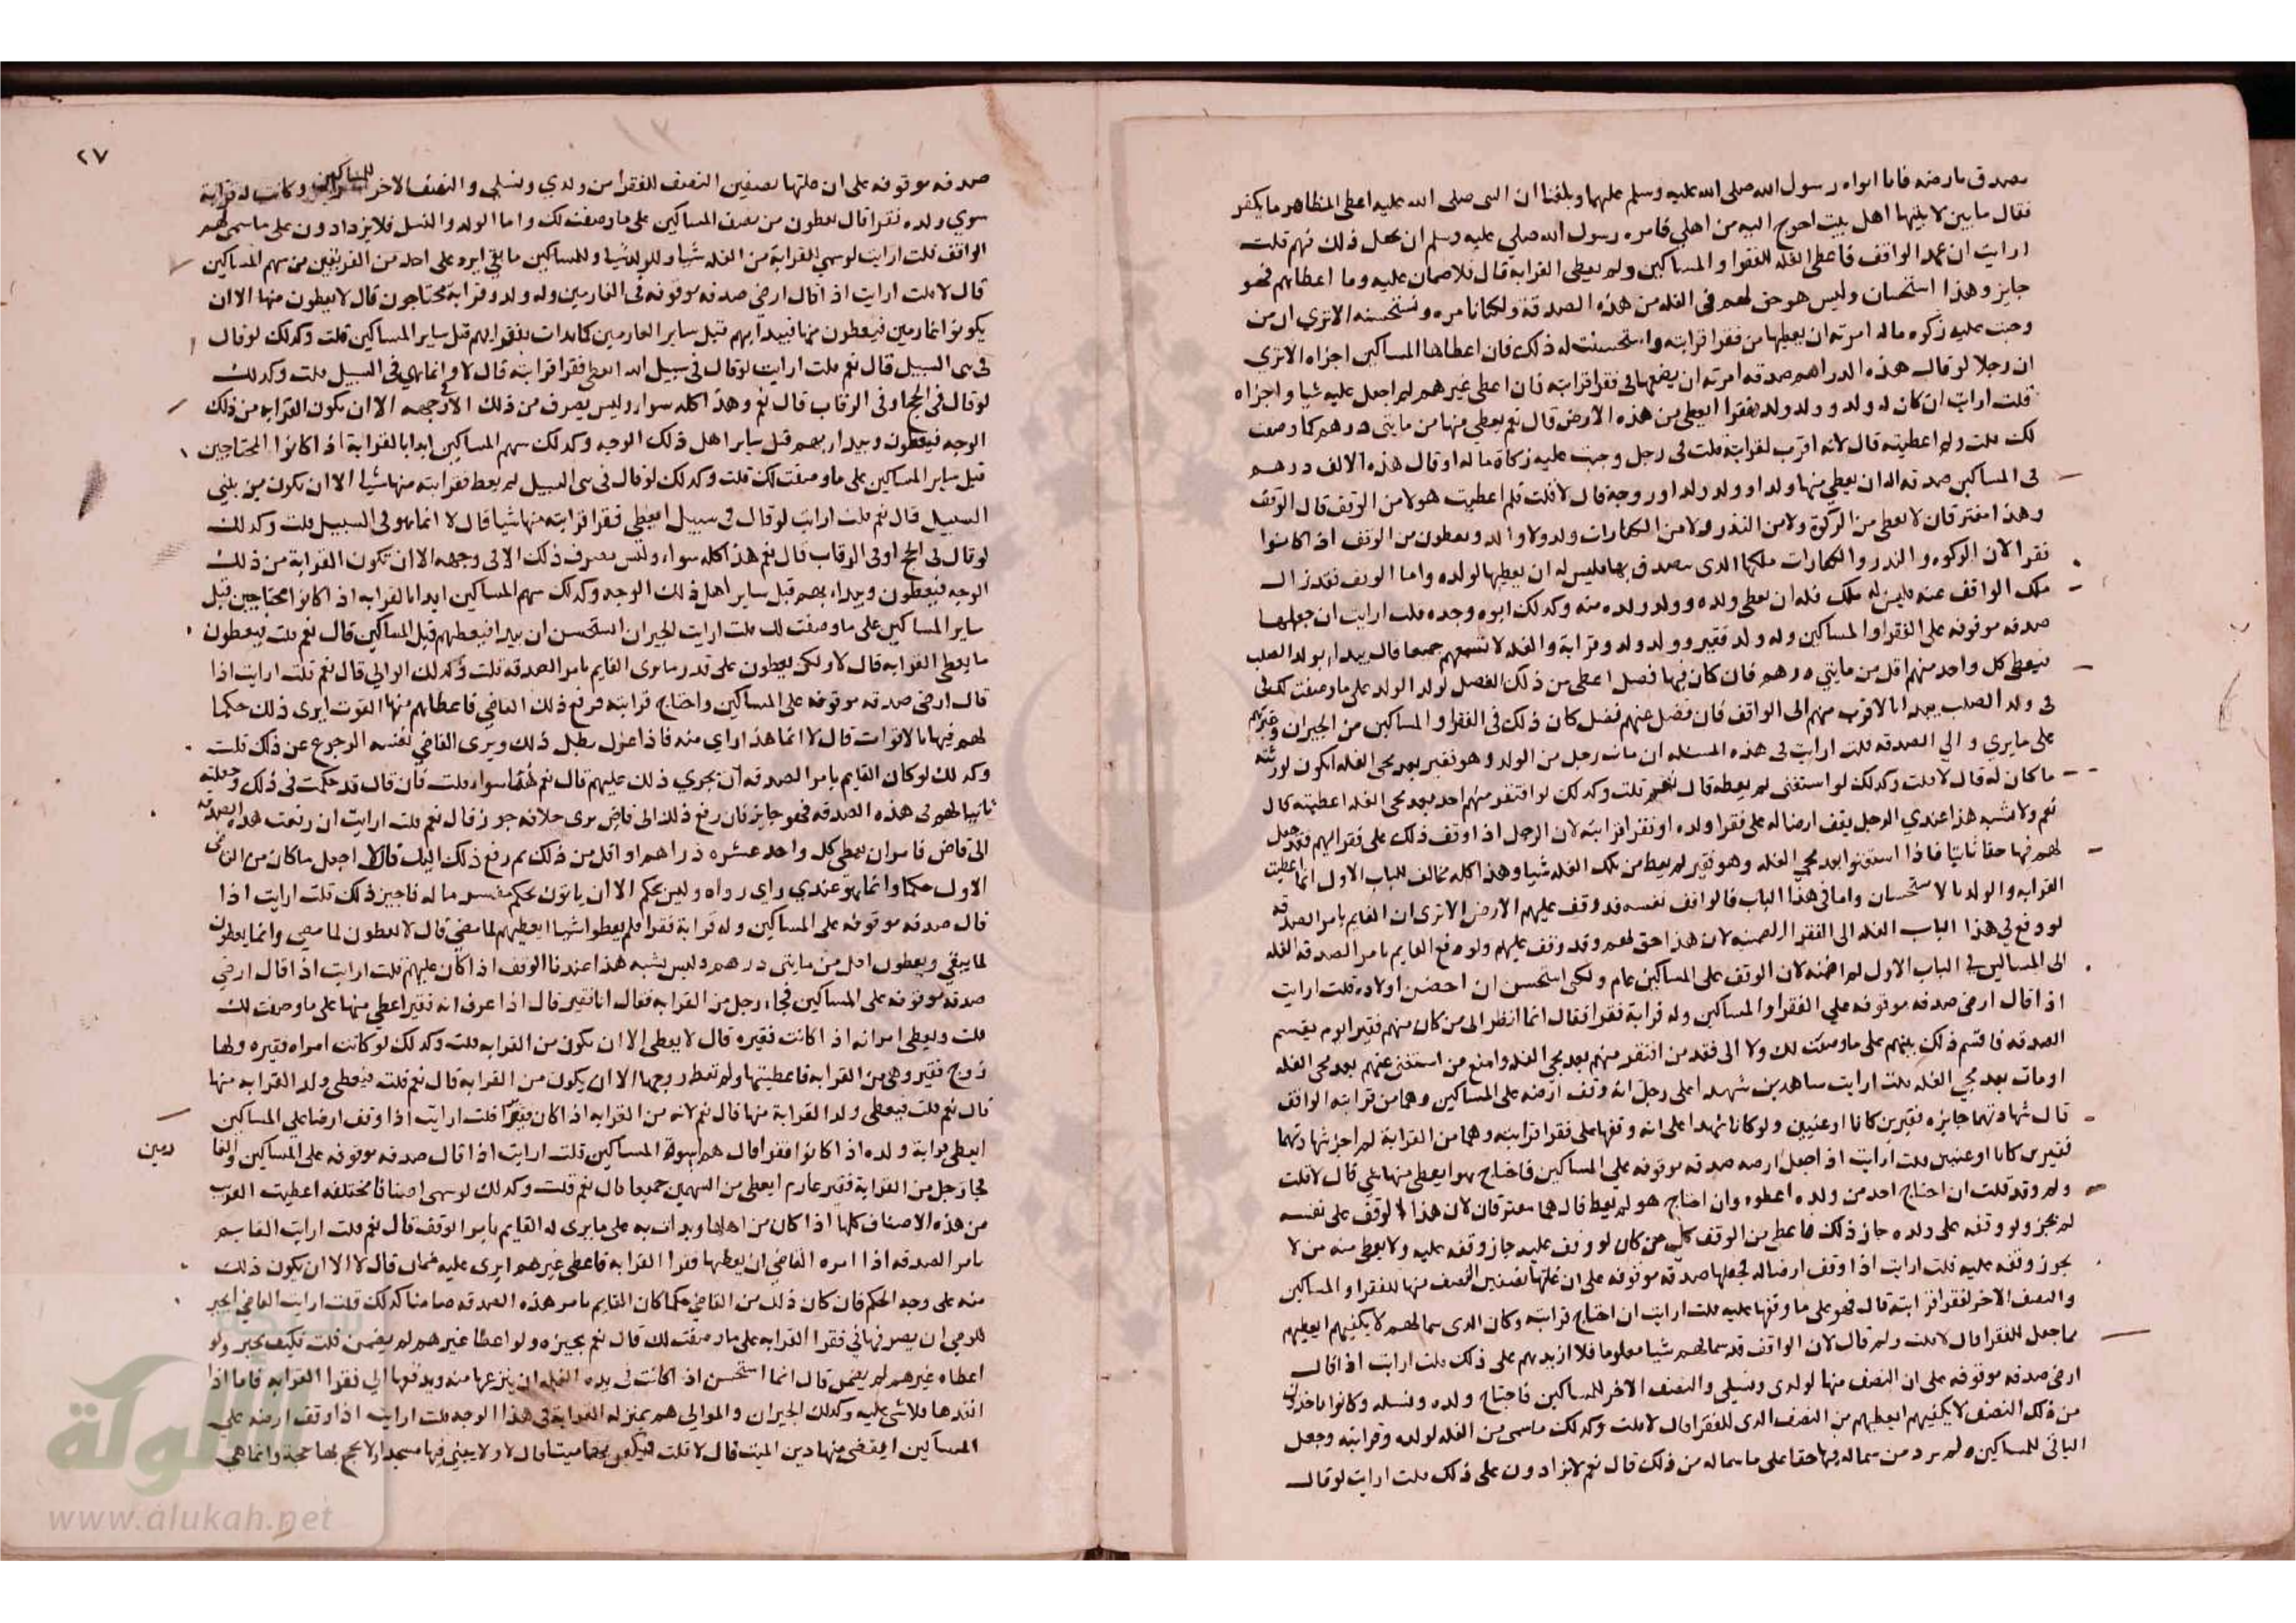 بصدق بارضه فاما ابواه رسول الله صلى الله عليه وسلم عليهما وبلغنا ان النبي صلى الله عليه اعطى المظاهر ما يكفر
فقال ما بين لابتيها اهل بيت احوج اليه من اهلي فامره رسول الله صلي عليه وسلم ان يجعل ذلك فيهم قلت
ارايت ان عمد الواقف فاعطى الغلة الفقرا والمساكين ولم يعطى القرابه قال فلا ضمان عليه وما اعطاهم فهو
جايز وهذا استحسان وليس هو حق لهم في الغلة من هذه الصدقة ولكنا نامره ونستحسنه الا تري ان من
وجبت عليه زكوه ماله امرته ان يعطيها من فقرا قرابته واستحسنت له ذلك فان اعطاها المساكين اجزاه الا تري
ان رجلا لو قال هذه الدراهم صدقه امرته ان يضعها في فقرا قرابته فان اعطى غيرهم لم اجعل عليه شيا واجزاه
قلت ارايت ان كان له ولد وولد ولد فقرا ايعطى من هذه الارض قال نعم يعطي منها من مايتي درهم كما وصفت
لك قلت ولم اعطيته قال لانه اقرب لقرابته قلت في رجل وجبت عليه زكاة ماله او قال هذه الالف درهم
في المساكين صدقه اله ان يعطي منها ولدا او ولد ولد او زوجة قال لا قلت فلم اعطيت هولا من الوقف قال الوقف
وهذا مفترقان لا يعطى من الزكوة ولا من النذر ولا من الكفارات ولد ولا والد ويعطون من الوقف اذا كانوا
فقرا لان الزكوه والنذر والكفارات ملكها الذي يتصدق بها فليس له ان يعطيها لولده واما الوقف فقد زال
ملك الواقف عنه فليس له ملك فله ان يعطى ولده وولد ولده منه وكذلك ابوه وجده قلت ارايت ان جعلها
صدقه موقوفه على الفقرا والمساكين وله ولد فقير وولد ولد وقرابة والغله لا تسعهم جميعا قال يبدا بولد الصلب
فيعطى كل واحد منهم اقل من مايتي درهم فان كان فيها فضل اعطى من ذلك الفضل لولد الولد على ما وصفت لك في
في ولد الصلب يبدا بالاقرب منهم الى الواقف فان فضل عنهم فضل كان ذلك في الفقرا والمساكين من الجيران وغيرهم
على ما يري والي الصدقه قلت ارايت في هذه المسئله ان مات رجل من الولد وهو فقير بعد مجى الغله ايكون لورثته
ما كان له قال لا قلت وكذلك لو استغنى لم يعطه قال نعم قلت وكذلك لو افتقر منهم احد بعد مجى الغله اعطيته قال
نعم ولا يشبه هذا عندي الرجل يقف ارضا له على فقرا ولده او فقرا قرابته لان الرجل اذا وقف ذلك على فقرايهم فقد جعل
لهم فيها حقا ثابتا فاذا استغنوا بعد مجي الغله وهو فقير لم يعط من تلك الغله شيا وهذا كله مخالف للباب الاول انما اعطيت
القرابه والولد بالاستحسان واما في هذا الباب فالواقف نفسه قد وقف عليهم الارض الا ترى ان القايم بامر الصدقه
لو دفع في هذا الباب الغله الى الفقرا لضمنه لان هذا حق لهم وقد وقف عليهم ولو دفع القايم بامر الصدقه الغله
الى المساكين في الباب الاول لم اضمنه لان الوقف على المساكين عام ولكى استحسن ان اخص اولاده قلت ارايت
اذا قال ارضى صدقه موقوفه على الفقرا والمساكين وله قرابة فقرا فقال انما انظر الى من كان منهم فقير ايوم يقسم
الصدقه فاقسم ذلك بينهم على ما وصفت لك ولا الى فقد من افتقر منهم بعد مجي الغله وامنع من استغنى عنهم بعد مجى الغله
او مات بعد مجي الغله قلت ارايت شاهدين شهدا على رجل انه وقف ارضه على المساكين وهما من قرابته الواقف
قال شهادتهما جايزه فقيرين كانا او غنيين ولو كانا شهدا على انه وقفها على فقرا قرابته وهما من القرابة لم اجز شهادتهما
فقيرين كانا او غنيين قلت ارايت اذا جعل ارضه صدقه موقوفه على المساكين فاحتاج هو ايعطى منها شي قال لا قلت
ولم وقد قلت ان احتاج احد من ولده اعطوه وان احتاج هو لم يعط قال هما مفترقان لان هذا لو وقف على نفسه
لم يجز ولو وقفه على ولده جاز ذلك فاعطى من الوقف كل من كان لو وقف عليه جاز وقفه عليه ولا يعطى منه من لا
يجوز وقفه عليه قلت ارايت اذا وقف ارضا له فجعلها صدقه موقوفه على ان غلتها نصفين النصف منها للفقرا والمساكين
والنصف الاخر لفقرا قرابته قال فهو على ما وقفها عليه قلت ارايت ان احتاج قرابته وكان الذي سما لهم لا يكفيهم ايعطيهم
ما جعل للفقرا قال لا قلت ولم قال لان الواقف قد سما لهم شيا معلوما فلا ازيدهم على ذلك قلت ارايت اذا قال
ارضى صدقه موقوفه على ان النصف منها لولدى ونسلي والنصف الاخر للمساكين فاحتاج ولده ونسله وكانوا ياخذون
من ذلك النصف لا يكفيهم ايعطيهم من النصف الذي للفقرا قال لا قلت وكذلك ما سمى من الغله لولده وقرابته وجعل
الباقى للمساكين ولم يرد من سما له فيها حقا على ما سما له من ذلك قال نعم لا يزادون على ذلك قلت ارايت لو قال
٢٧
صدقه موقوفه على ان غلتها نصفين النصف للفقرا من ولدي ونسلي والنصف الاخر للمساكين وكانت له قرابة
سوي ولده فقرا قال يعطون من نصف المساكين على ما وصفت لك واما الولد والنسل فلا يزدادون على ما سمى لهم
الواقف قلت ارايت لو سمي القرابة من الغله شيا وللولد شيا وللمساكين ما بقي ايرد على احد من الفريقين من سهم المساكين
قال لا قلت ارايت اذا قال ارضى صدقه موقوفه في الغارمين وله ولد وقرابة محتاجون قال لا يعطون منها الا ان
يكونوا غارمين فيعطون منها فيبدا بهم قبل ساير الغارمين كما بدات بفقرايهم قبل ساير المساكين قلت وكذلك لو قال
في بنى السبيل قال نعم قلت ارايت لو قال في سبيل الله ايعطى فقرا قرابته قال لا وانما هي في السبيل قلت وكذلك
لو قال في الحج او في الرقاب قال نعم وهذا كله سوا وليس يصرف من ذلك الا في وجهه الا ان يكون القرابه من ذلك
الوجه فيعطون ويبدا بهم قبل ساير اهل ذلك الوجه وكذلك سهم المساكين ابدا بالقرابة اذا كانوا المحتاجين
قبل ساير المساكين على ما وصفت لك قلت وكذلك لو قال في بنى السبيل لم يعط فقرا بته منها شيا الا ان يكون من بني
السبيل قال نعم قلت ارايت لو قال في سبيل ايعطي فقرا قرابته منها شيا قال لا انما هو في السبيل قلت وكذلك
لو قال في الحج او في الرقاب قال نعم هذا كله سواء وليس يصرف ذلك الا في وجهه الا ان تكون القرابة من ذلك
الوجه فيعطون ويبداء بهم قبل ساير اهل ذلك الوجه وكذلك سهم المساكين ابدا بالقرابه اذا كانوا محتاجين قبل
ساير المساكين على ما وصفت لك قلت ارايت الجيران استحسن ان يبدا فيعطيهم قبل المساكين قال نعم قلت فيعطون
ما يعطى القرابه قال لا ولكن يعطون على قدر ما يرى القايم بامر الصدقه قلت وكذلك الوالي قال نعم قلت ارايت اذا
قال ارضى صدقه موقوفه على المساكين واحتاج قرابته فرفع ذلك القاضي فاعطاهم منها القوت ايرى ذلك حكما
لهم فيها بالاقوات قال لا انما هذا راي منه فاذا عزل بطل ذلك ويرى القاضي لنفسه الرجوع عن ذلك قلت
وكذلك لو كان القايم بامر الصدقه ان يجري ذلك عليهم قال نعم هما سواء قلت فان قال قد حكمت في ذلك وجعلته
ثابتا لهم في هذه الصدقه فهو جايز فان رفع ذلك الى قاض يرى خلافه جوز قال نعم قلت ارايت ان رفعت هذه الصدقه
الى قاض فامر ان يعطى كل واحد عشره دراهم او اقل من ذلك ثم رفع ذلك اليك قال لا اجعل ما كان من القاضي
الاول حكما وانما هو عندي راي رواه وليس بحكم الا ان ياتون بحكم مفسر ما له فاجيز ذلك قلت ارايت اذا
قال صدقه موقوفه على المساكين وله قرابة فقرا فلم يعطوا شيا ايعطيهم لما مضي قال لا يعطون لما مضي وانما يعطون
لما يبقي ويعطون اقل من مايتي درهم وليس يشبه هذا عندنا الوقف اذا كان عليهم قلت ارايت اذا قال ارضي
صدقه موقوفه على المساكين فجاء رجل من القرابه فقال انا فقير قال اذا عرف انه فقير اعطي منها على ما وصفت لك
قلت ويعطى امراته اذا كانت فقيره قال لا يعطى الا ان يكون من القرابه قلت وكذلك لو كانت امراه فقيره ولها
زوج فقير وهي من القرابه فاعطيتها ولم تعط زوجها الا ان يكون من القرابه قال نعم قلت فيعطى ولد القرابه منها
قال نعم قلت فيعطى ولد القرابة منها قال نعم لانه من القرابه اذا كان فقيرا قلت ارايت اذا وقف ارضا على المساكين
ايعطى قرابة ولده اذا كانوا فقرا قال هم اسوة المساكين قلت ارايت اذا قال صدقه موقوفه على المساكين والغا
رمين
فجا رجل من القرابة فقير غارم ايعطى من السهمين جميعا قال نعم قلت وكذلك لو سمى اصنافا مختلفه اعطيت القرب
من هذه الاصناف كلها اذا كان من اهلها وبدات به على ما يرى له القايم بامر الوقف قال نعم قلت ارايت القايم
بامر الصدقه اذا امره القاضي ان يعطيها فقرا القرابه فاعطى غيرهم ايرى عليه ضمان قال لا الا ان يكون ذلك
منه على وجه الحكم فان كان ذلك من القاضي حكما كان القايم بامر هذه الصدقه ضامنا كذلك قلت ارايت القاضي ايجبر
للوصي ان يصرفها في فقرا القرابه على ما وصفت لك قال نعم يجيزه ولو اعطا غيرهم لم يضمن قلت فكيف يجبر ولو
اعطاه غيرهم لم يضمن قال انما استحسن اذا كانت في يده الغله ان ينزعها منه ويدفعها الي فقرا القرابه فاما اذا
انفدها فلا شى عليه وكذلك الجيران والموالي هم بمنزله القرابة في هذا الوجه قلت ارايت اذا وقف ارضه علي
المساكين ايقضى منها دين الميت قال لا قلت فيكفن بها ميتا قال لا ولا يبنى فيها مسجد ولا يحج بها حجة وانما هي
الألوكة
www.alukah.net